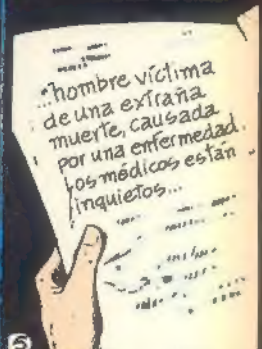 ...hombre víctima
de una extraña
muerte, causada
por una enfermedad.
Los médicos están
inquietos...
6